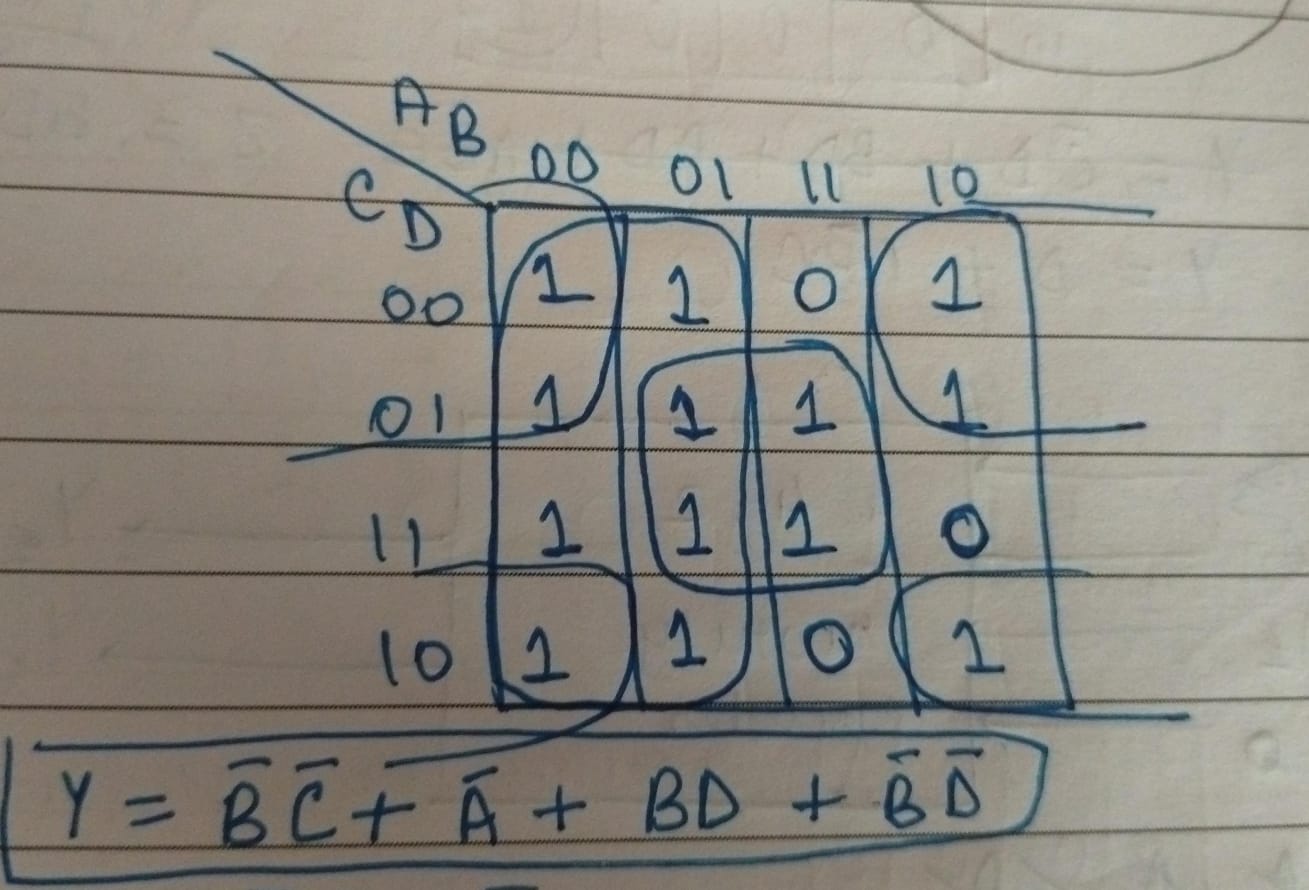 AB
00 01 11 10
CD
00 1 1 0 1
01 1 1 1 1
11 1 1 1 0
10 1 1 0 1
Y = B̄ C̄ + Ā + BD + B̄ D̄